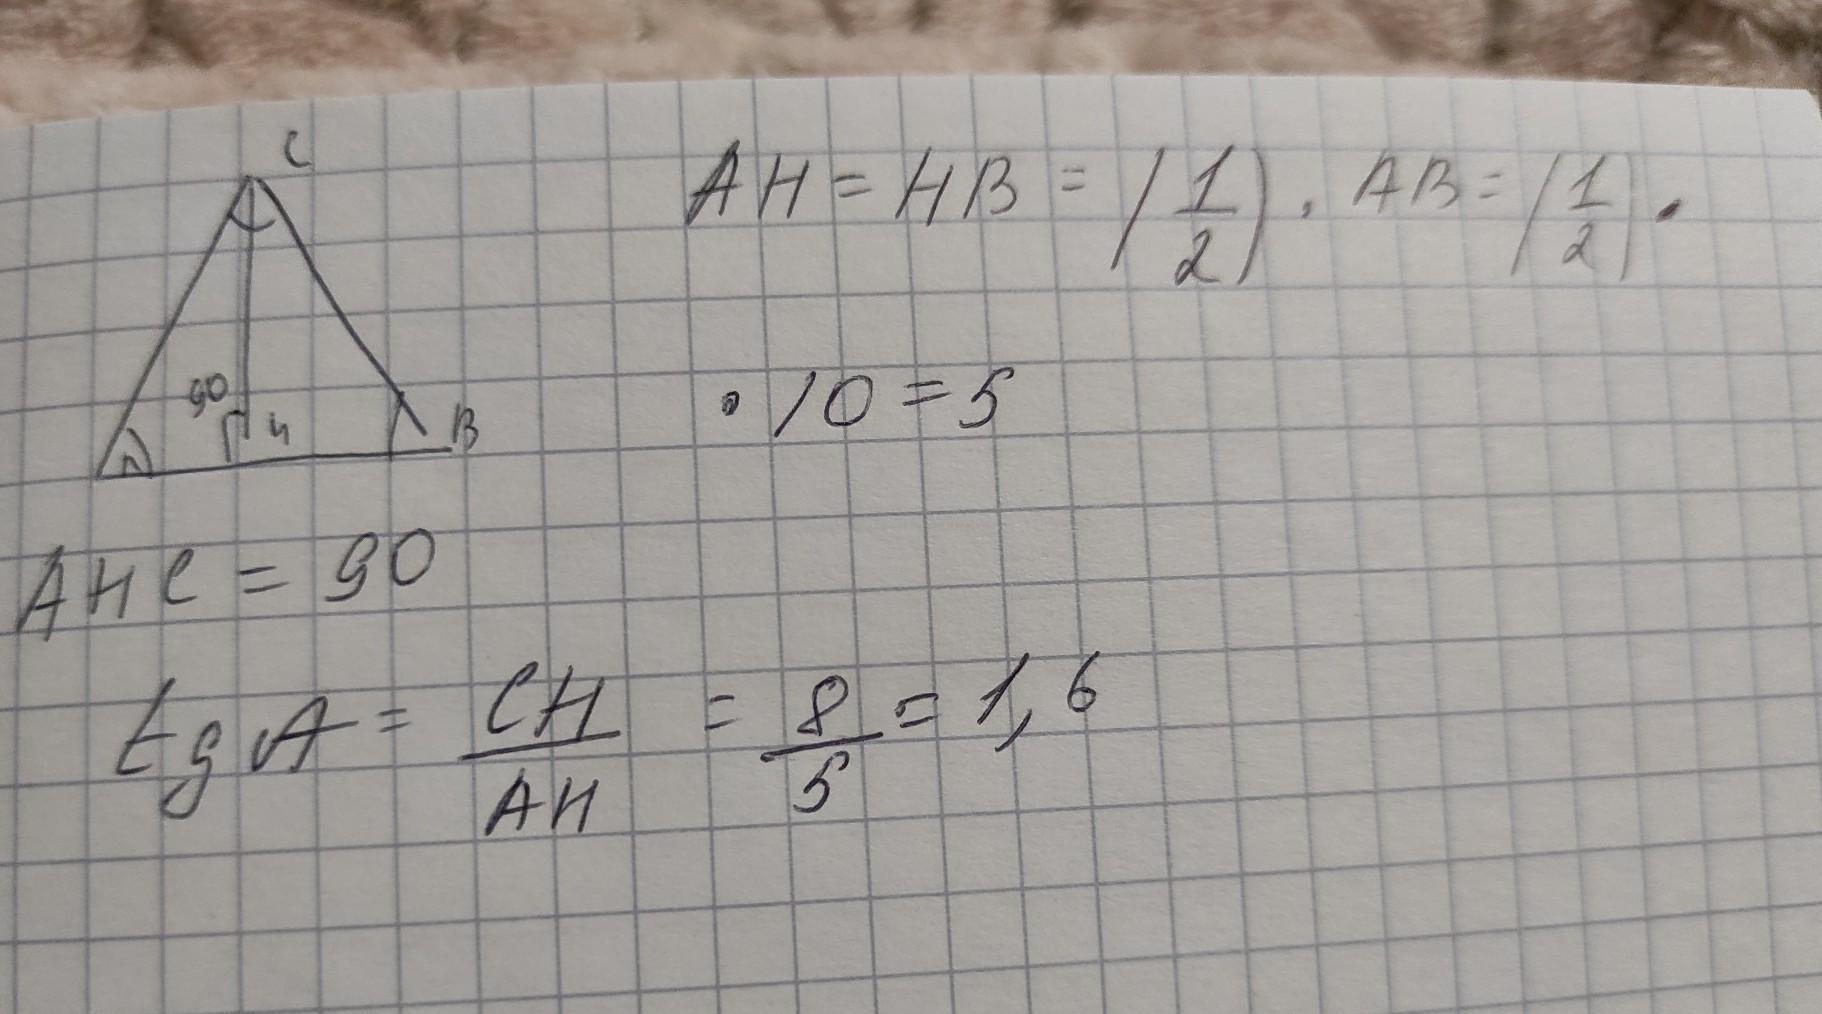 C
90
H
A
B
AH = HB = (1/2) · AB = (1/2) ·
· 10 = 5
AHC = 90
tg A = CH/AH = 8/5 = 1,6